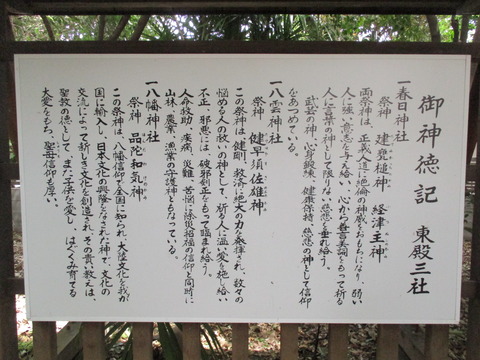 御神徳記 東殿三社
一春日神社
祭神 建甕槌神 経津主神
両祭神は、正義人道に絶倫の神威をおもちになり、弱い
人に強い意志を与え給い、心から善言美詞をもって祈る
人に言葉の神として限りない慈悲を垂れ給う。
武芸の神、心身鍛練、健康保持、慈悲の神として信仰
をあつめている。
一八雲神社
祭神 健早須佐雄神
この祭神は、健剛、救済に絶大の力を発揮され、数々の
悩める人の救いの神として、祈る人に温い愛を施し給い、
不正、邪悪には、破邪剣正をもって臨まれ給う。
人命救助、疾病、災難、苦悩に除災招福の信仰と同時に
山林、農業、漁業の守護神ともなっている。
一八幡神社
祭神 品陀和気神
この祭神は、八幡信仰で全国に知られ、大陸文化を我が
国に輸入し、日本文化の興隆をなされた神で、文化の
交流によって新しき文化を創造され、その貴い教えは、
聖教の徳として、また子供を愛し、はぐくみ育てる
大愛をもち、聖母信仰も厚い。